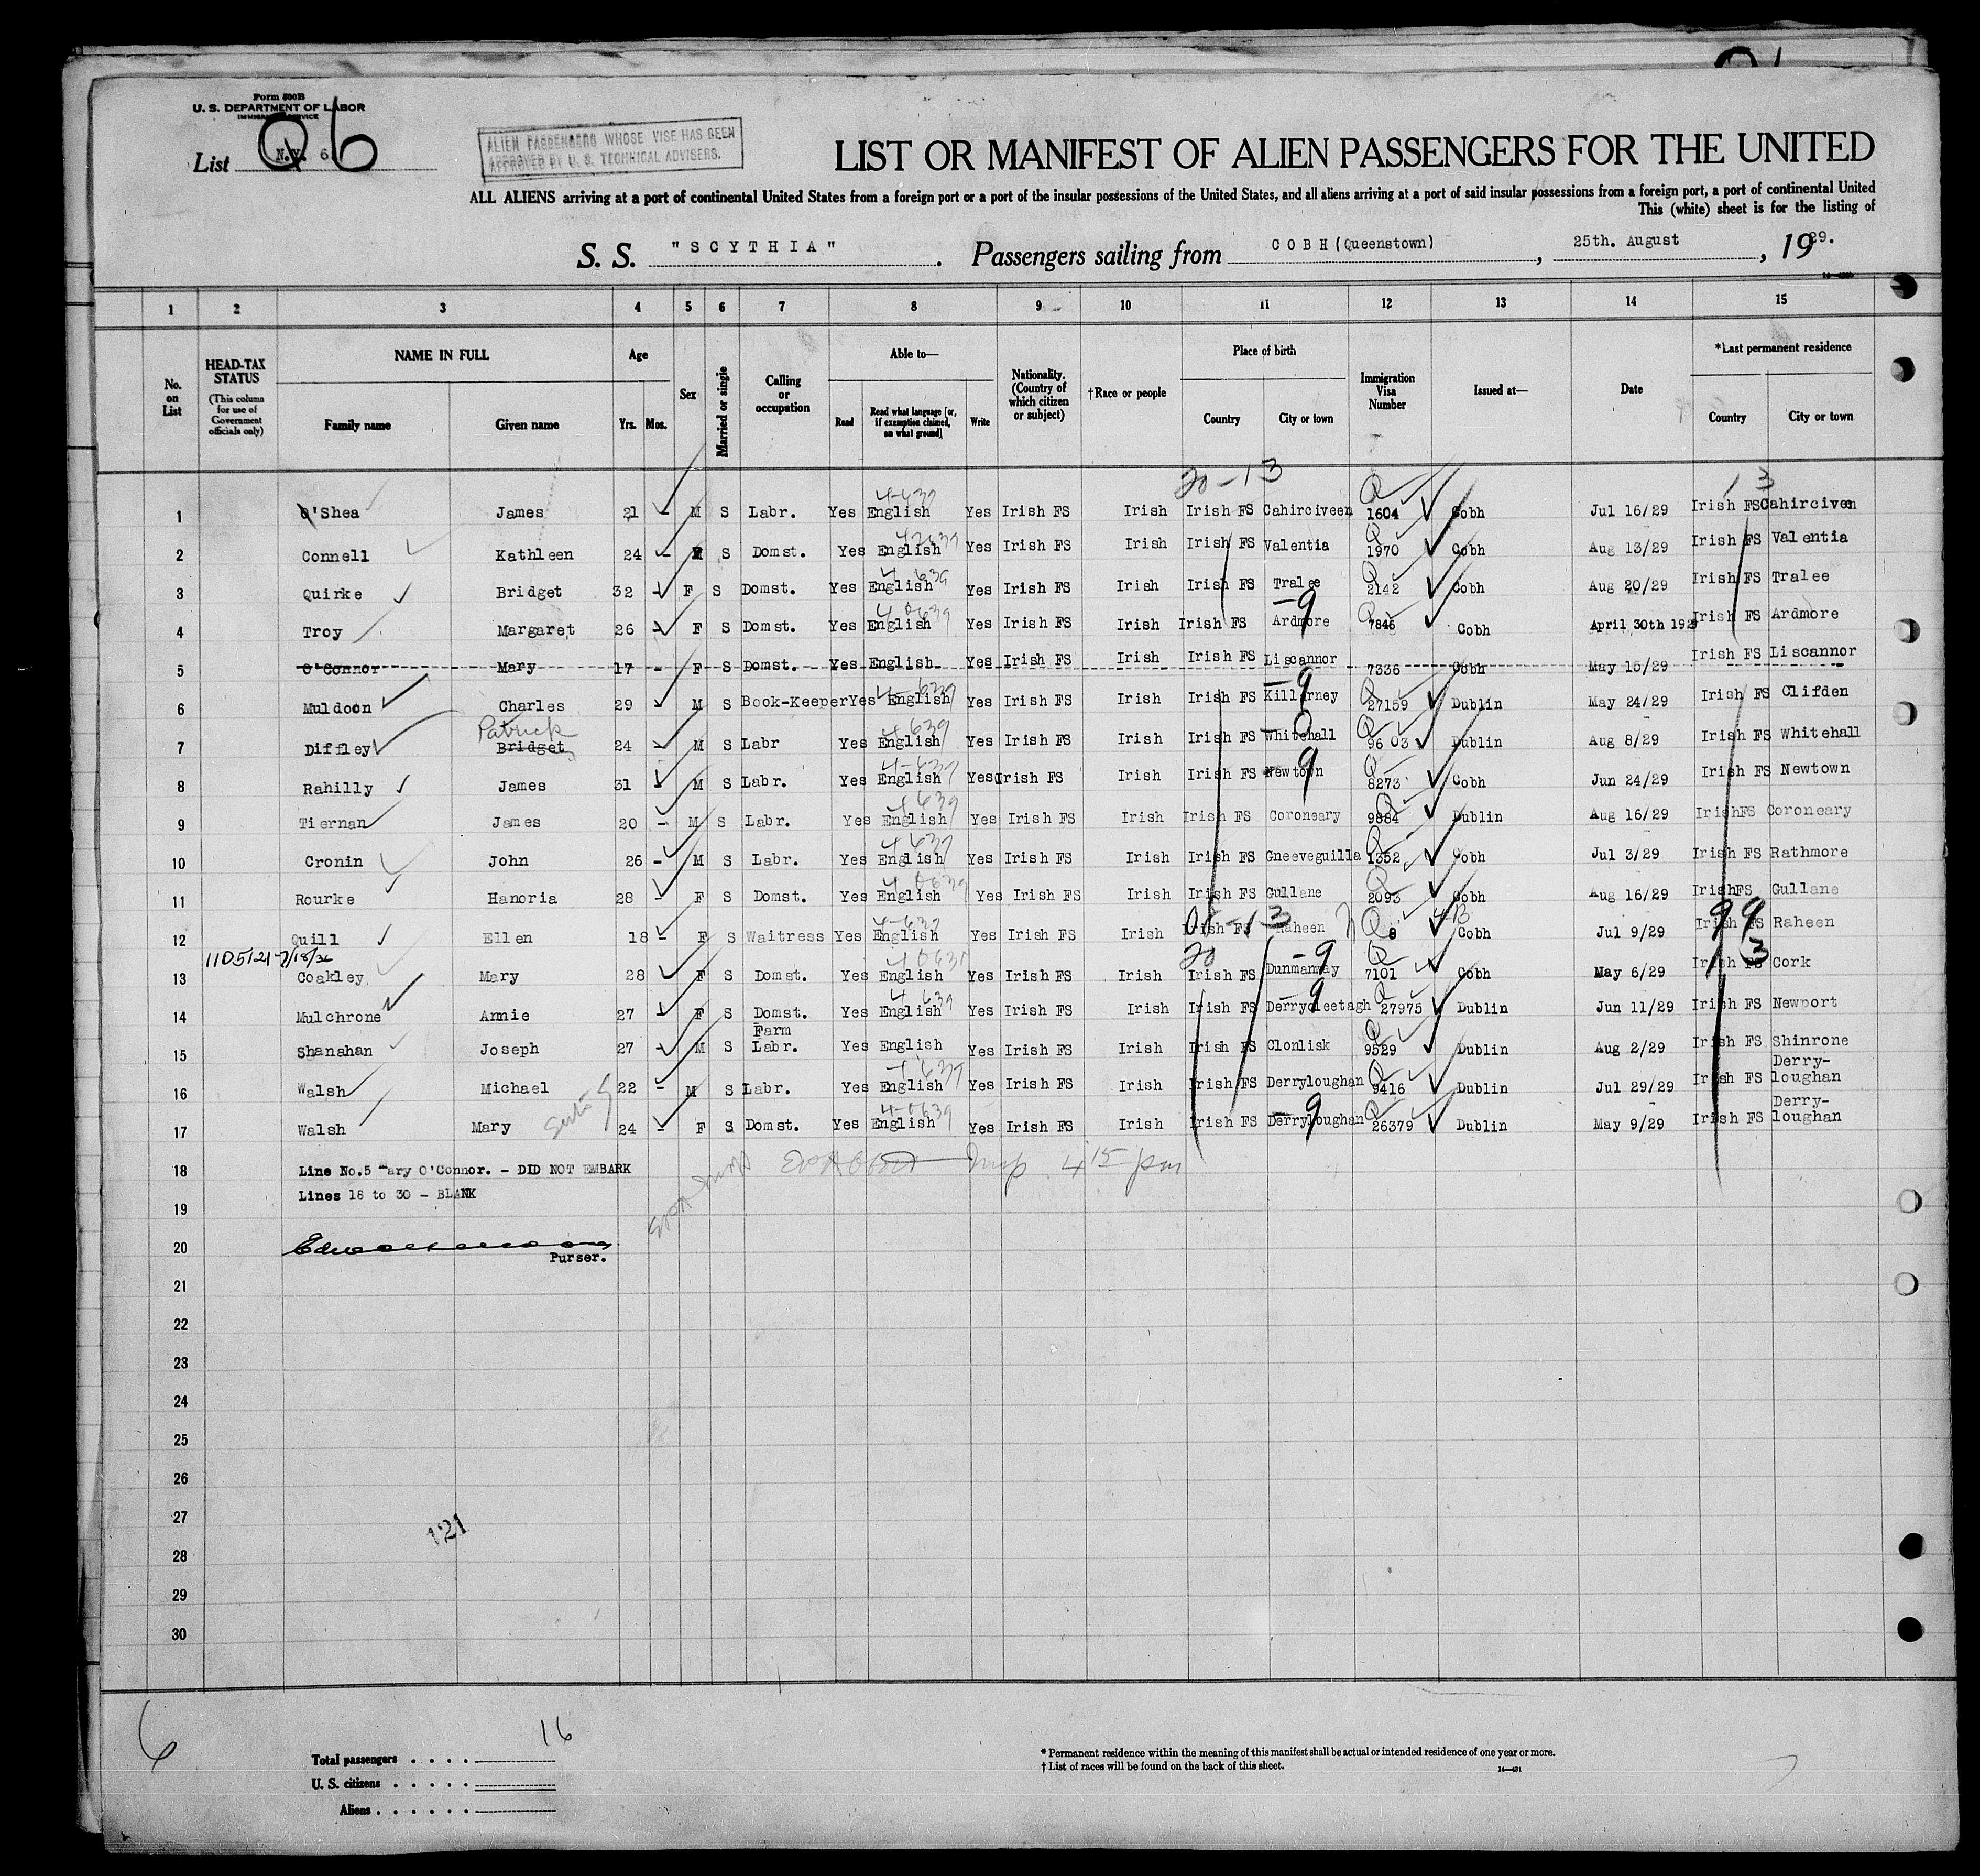 Form 500B
U. S. DEPARTMENT OF LABOR
IMMIGRATION SERVICE
List N.Y. 6. 6
ALIEN PASSENGERS WHOSE VISE HAS BEEN
APPROVED BY U. S. TECHNICAL ADVISERS.
LIST OR MANIFEST OF ALIEN PASSENGERS FOR THE UNITED
ALL ALIENS arriving at a port of continental United States from a foreign port or a port of the insular possessions of the United States, and all aliens arriving at a port of said insular possessions from a foreign port, a port of continental United
This (white) sheet is for the listing of
S. S. "SCYTHIA". Passengers sailing from COBH (Queenstown), 25th. August, 1929.
1 2 3 4 5 6 7 8 9 10 11 12 13 14 15
No. on List
HEAD-TAX STATUS (This column for use of Government officials only)
NAME IN FULL
Family name
Given name
Age
Yrs. Mos.
Sex
Married or single
Calling or occupation
Able to—
Read
Read what language [or, if exemption claimed, on what ground]
Write
Nationality. (Country of which citizen or subject)
†Race or people
Place of birth
Country
City or town
Immigration Visa Number
Issued at—
Date
*Last permanent residence
Country
City or town
20-13
1 O'Shea James 21 - M S Labr. Yes English Yes Irish FS Irish Irish FS Cahirciveen 1604 Cobh Jul 16/29 Irish FS Cahirciveen
2 Connell Kathleen 24 - S Domst. Yes English Yes Irish FS Irish Irish FS Valentia 1970 Cobh Aug 13/29 Irish FS Valentia
3 Quirke Bridget 32 - F S Domst. Yes English Yes Irish FS Irish Irish FS Tralee 2142 Cobh Aug 20/29 Irish FS Tralee
4 Troy Margaret 26 - F S Domst. Yes English Yes Irish FS Irish Irish FS Ardmore 7846 Cobh April 30th 1929 Irish FS Ardmore
5 O'Connor Mary 17 - F S Domst. Yes English Yes Irish FS Irish Irish FS Liscannor 7336 Cobh May 15/29 Irish FS Liscannor
6 Muldoon Charles 29 M S Book-Keeper Yes English Yes Irish FS Irish Irish FS Killarney 27159 Dublin May 24/29 Irish FS Clifden
Patrick
7 Diffley Bridget 24 - M S Labr Yes English Yes Irish FS Irish Irish FS Whitehall 9603 Dublin Aug 8/29 Irish FS Whitehall
8 Rahilly James 31 M S Labr. Yes English Yes Irish FS Irish Irish FS Newtown 8273 Cobh Jun 24/29 Irish FS Newtown
9 Tiernan James 20 - M S Labr. Yes English Yes Irish FS Irish Irish FS Coroneary 9864 Dublin Aug 16/29 Irish FS Coroneary
10 Cronin John 26 - M S Labr. Yes English Yes Irish FS Irish Irish FS Gneeveguilla 1352 Cobh Jul 3/29 Irish FS Rathmore
11 Rourke Hanoria 28 - F S Domst. Yes English Yes Irish FS Irish Irish FS Gullane 2093 Cobh Aug 16/29 Irish FS Gullane
12 Quill Ellen 18 - F S Waitress Yes English Yes Irish FS Irish Irish FS Raheen 8 Cobh Jul 9/29 Irish FS Raheen
13 Coakley Mary 28 F S Domst. Yes English Yes Irish FS Irish Irish FS Dunmanway 7101 Cobh May 6/29 Irish FS Cork
14 Mulchrone Annie 27 F S Domst. Yes English Yes Irish FS Irish Irish FS Derrycleetagh 27975 Dublin Jun 11/29 Irish FS Newport
Farm
15 Shanahan Joseph 27 - M S Labr. Yes English Yes Irish FS Irish Irish FS Clonlisk 9529 Dublin Aug 2/29 Irish FS Shinrone
Derry-
16 Walsh Michael 22 - M S Labr. Yes English Yes Irish FS Irish Irish FS Derryloughan 9416 Dublin Jul 29/29 Irish FS loughan
Derry-
17 Walsh Mary 24 - F S Domst. Yes English Yes Irish FS Irish Irish FS Derryloughan 26379 Dublin May 9/29 Irish FS loughan
18 Line No.5 Mary O'Connor. - DID NOT EMBARK
Lines 18 to 30 - BLANK
19
20
Purser.
21
22
23
24
25
26
27
121
28
29
30
6
16
Total passengers
U. S. citizens
Aliens
* Permanent residence within the meaning of this manifest shall be actual or intended residence of one year or more.
† List of races will be found on the back of this sheet.